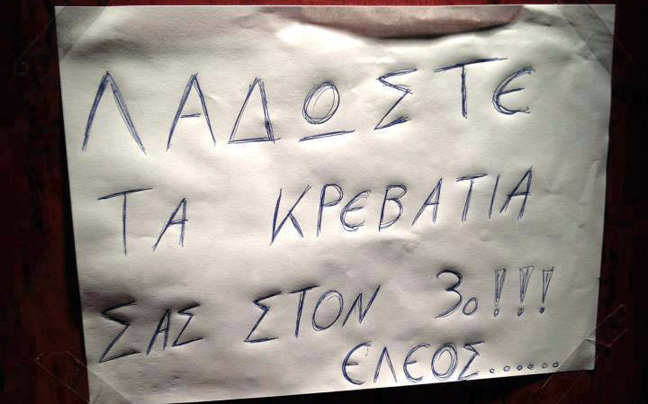 ΛΑΔΩΣΤΕ
ΤΑ ΚΡΕΒΑΤΙΑ
ΣΑΣ ΣΤΟΝ 3ο!!!
ΕΛΕΟΣ......